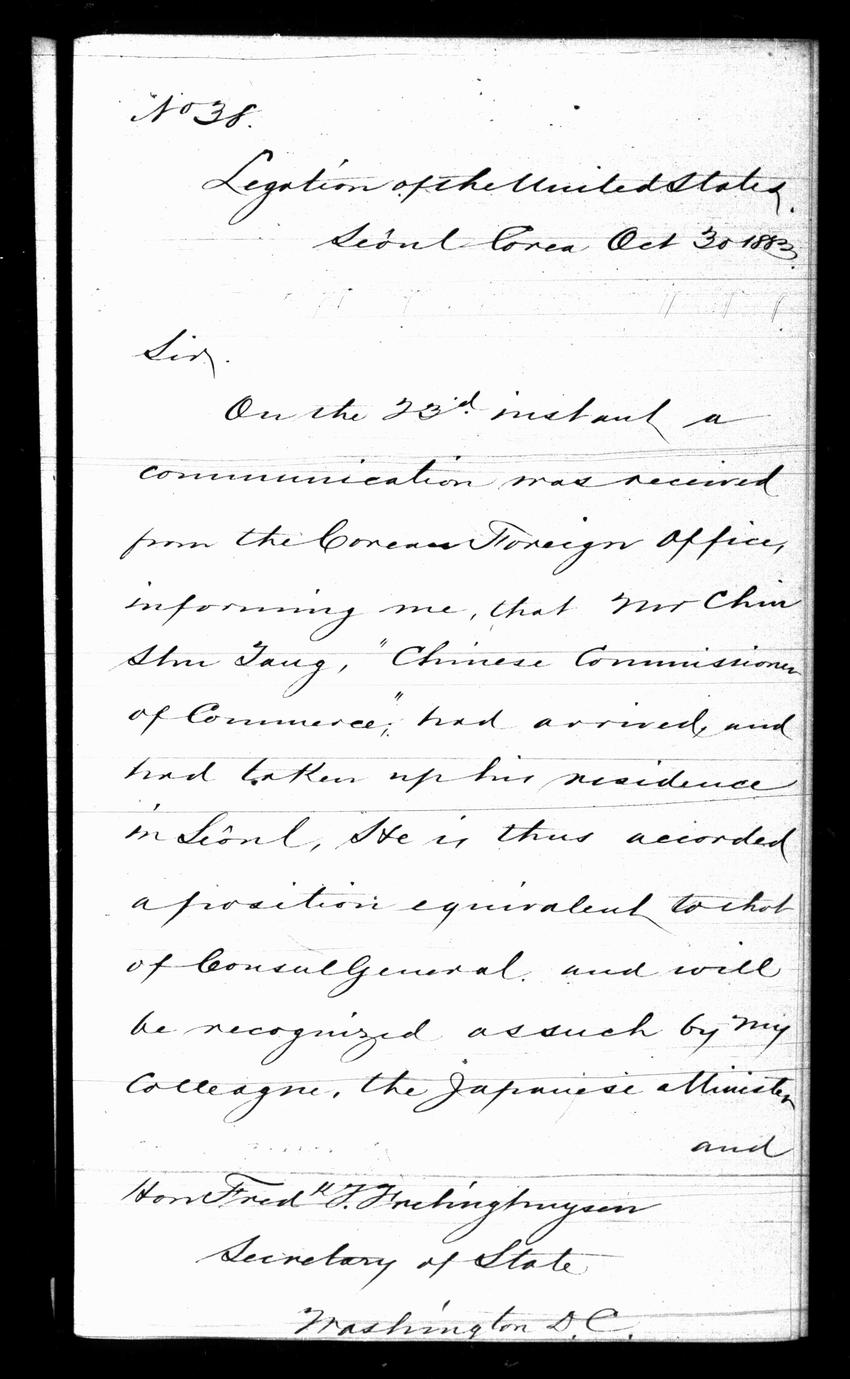 No 38.
Legation of the United States.
Seôul Corea Oct 30 1883.
Sir.
On the 23d. instant a
communication was received
from the Corean Foreign Office,
informing me, that Mr Chin
Shu Tang, "Chinese Commissioner
of Commerce", had arrived, and
had taken up his residence
in Seôul, He is thus accorded
a position equivalent to that
of Consul General. and will
be recognized as such by my
Colleague, the Japanese Minister
and
Hon Fredk F. Frelinghuysen
Secretary of State
Washington D.C.